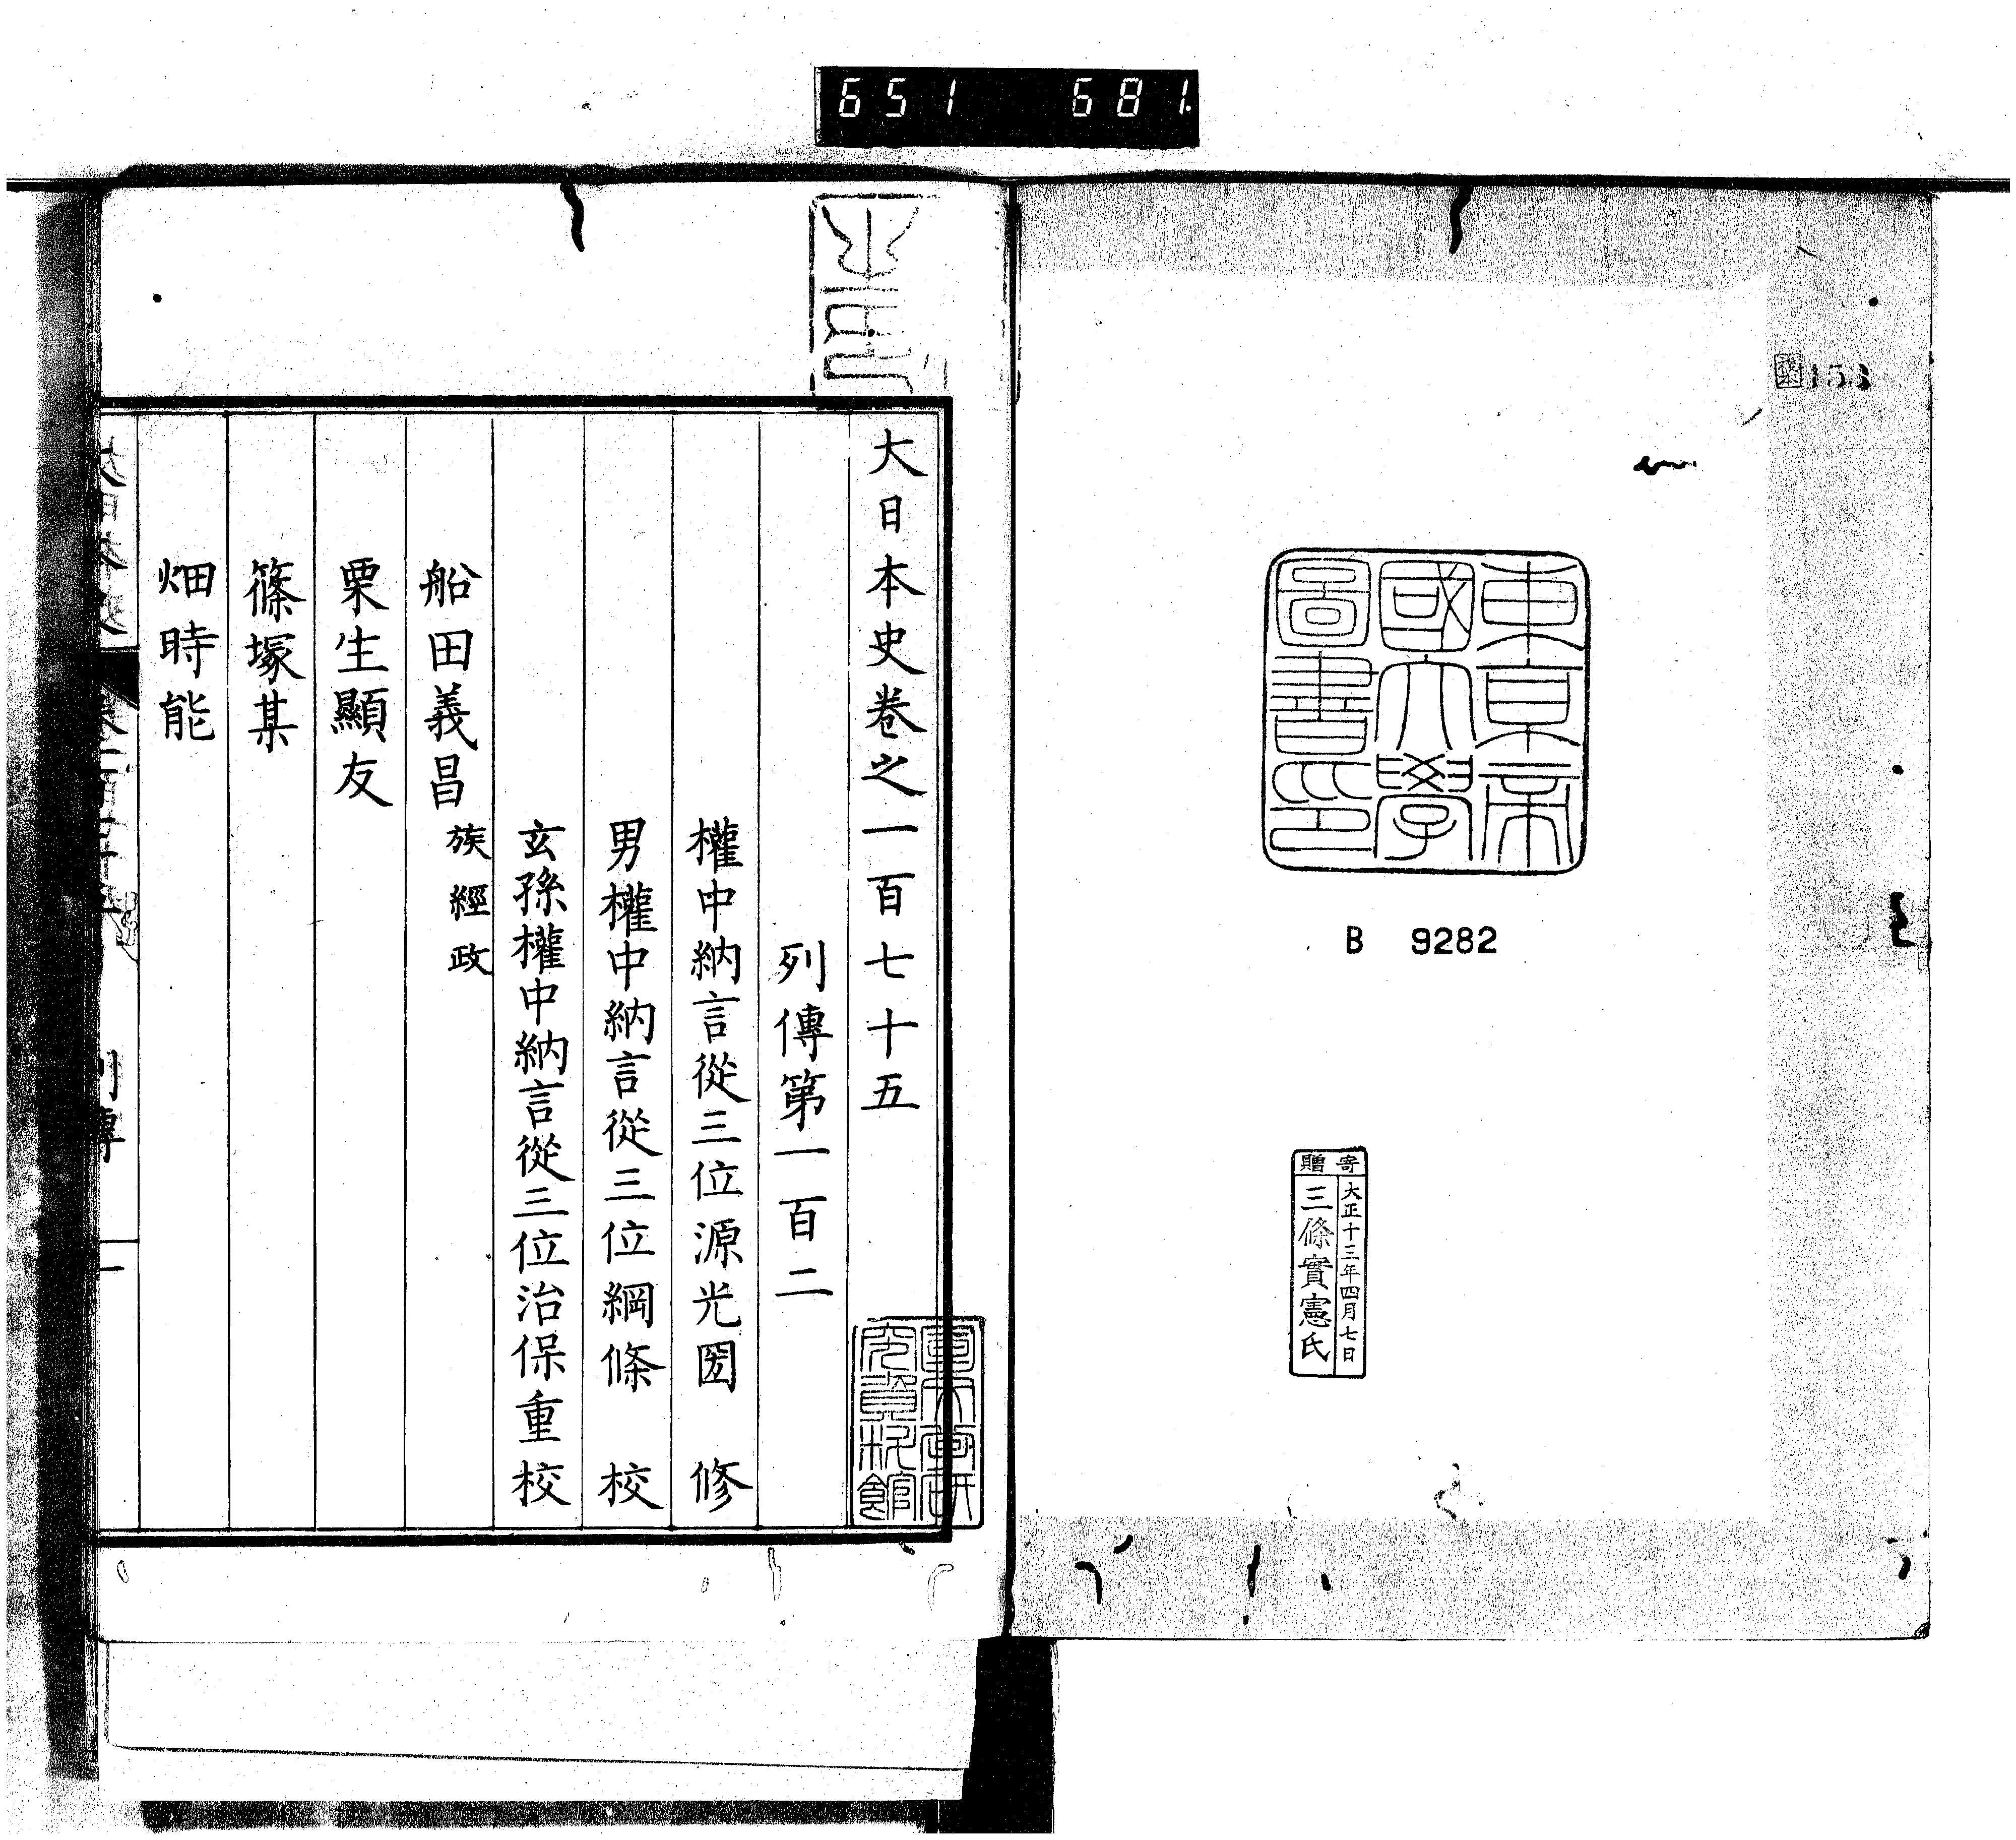 651 681
153
東京帝
國大學
圖書印
B 9282
寄贈
大正十三年四月七日
三條實憲氏
大日本史卷之一百七十五
列傳第一百二
權中納言從三位源光圀 修
男權中納言從三位綱條 校
玄孫權中納言從三位治保重校
船田義昌 族經政
栗生顯友
篠塚某
畑時能